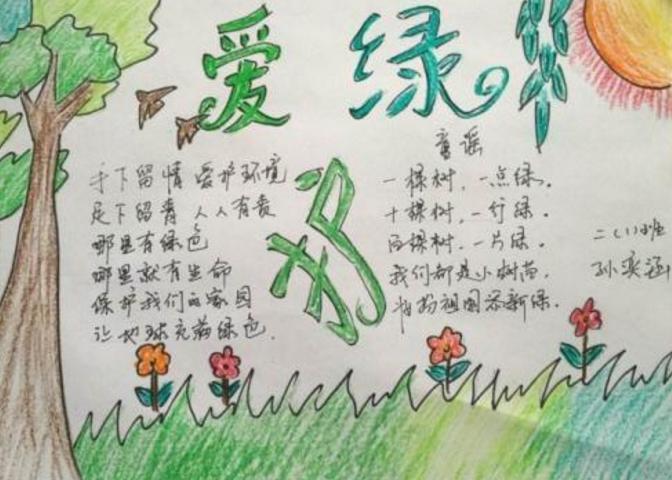 爱绿护
手下留情 爱护环境
足下留青 人人有责
哪里有绿色
哪里就有生命
保护我们的家园
让地球充满绿色.
童谣
一棵树,一点绿.
十棵树,一行绿.
百棵树.一片绿.
我们都是小树苗.
祖国添新绿.
二(1)班
孙奕涵